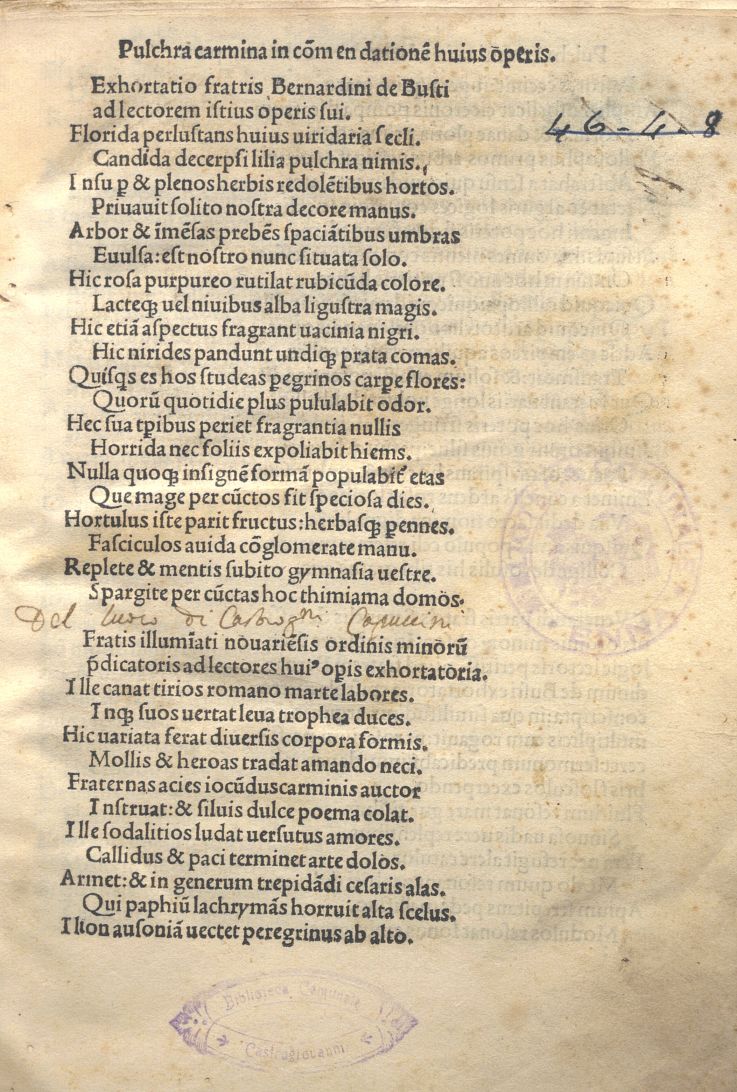 Pulchra carmina in cōm en dationē huius operis.
Exhortatio fratris Bernardini de Busti
ad lectorem istius operis sui.
46-4-8
Florida perlustans huius uiridaria secli.
Candida decerpsi lilia pulchra nimis.
Insup̱ & plenos herbis redolētibus hortos.
Priuauit solito nostra decore manus.
Arbor & īmēsas prebēs spaciātibus umbras
Euulsa: est nostro nunc situata solo.
Hic rosa purpureo rutilat rubicūda colore.
Lacteqꝫ uel niuibus alba ligustra magis.
Hic etiā aspectus fragrant uacinia nigri.
Hic nirides pandunt undiqꝫ prata comas.
Quisqs es hos studeas pegrinos carpe flores:
Quorū quotidie plus pululabit odor.
Hec sua tp̄ibus periet fragrantia nullis
Horrida nec foliis expoliabit hiems.
Nulla quoqꝫ insignē formā populabit̄ etas
Que mage per cūctos fit speciosa dies.
Hortulus iste parit fructus: herbasqꝫ pennes.
Fasciculos auida cōglomerate manu.
Replete & mentis subito gymnasia uestre.
Spargite per cūctas hoc thimiama domos.
Del luoco di Castrogñi Capuccini
Fratis illumīati nouariēsis ordinis minorū
p̄dicatoris ad lectores huiꝰ opis exhortatoria.
Ille canat tirios romano marte labores.
Inqꝫ suos uertat leua trophea duces.
Hic uariata ferat diuersis corpora formis.
Mollis & heroas tradat amando neci.
Fraternas acies iocūdus carminis auctor
Instruat: & siluis dulce poema colat.
Ille sodalitios ludat uersutus amores.
Callidus & paci terminet arte dolos.
Armet: & in generum trepidādi cesaris alas.
Qui paphiū lachrymās horruit alta scelus.
Ilion ausoniā uectet peregrinus ab alto.
Biblioteca Comunale
Castrogiovanni